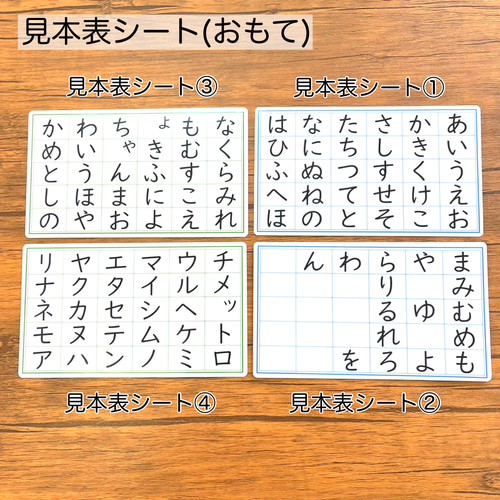 見本表シート(おもて)
見本表シート①
あいうえお
かきくけこ
さしすせそ
たちつてと
なにぬねの
はひふへほ
見本表シート②
まみむめも
や ゆ よ
らりるれろ
わ を
ん
見本表シート③
なくらみれ
もむすこえ
ょきふによ
ちゃんまお
わいうほや
かめとしの
見本表シート④
チメットロ
ウルヘケミ
マイシムノ
エタセテン
ヤクカヌハ
リナネモア